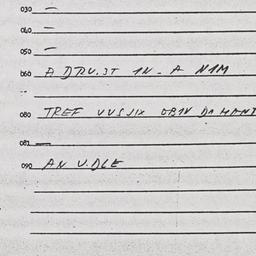 030 —
040 —
050 —
060 A DPU.3T 1N - A N1M
--
080 TREF VVSJIX OB1V DA MANT
081 —
090 AN V.DLE